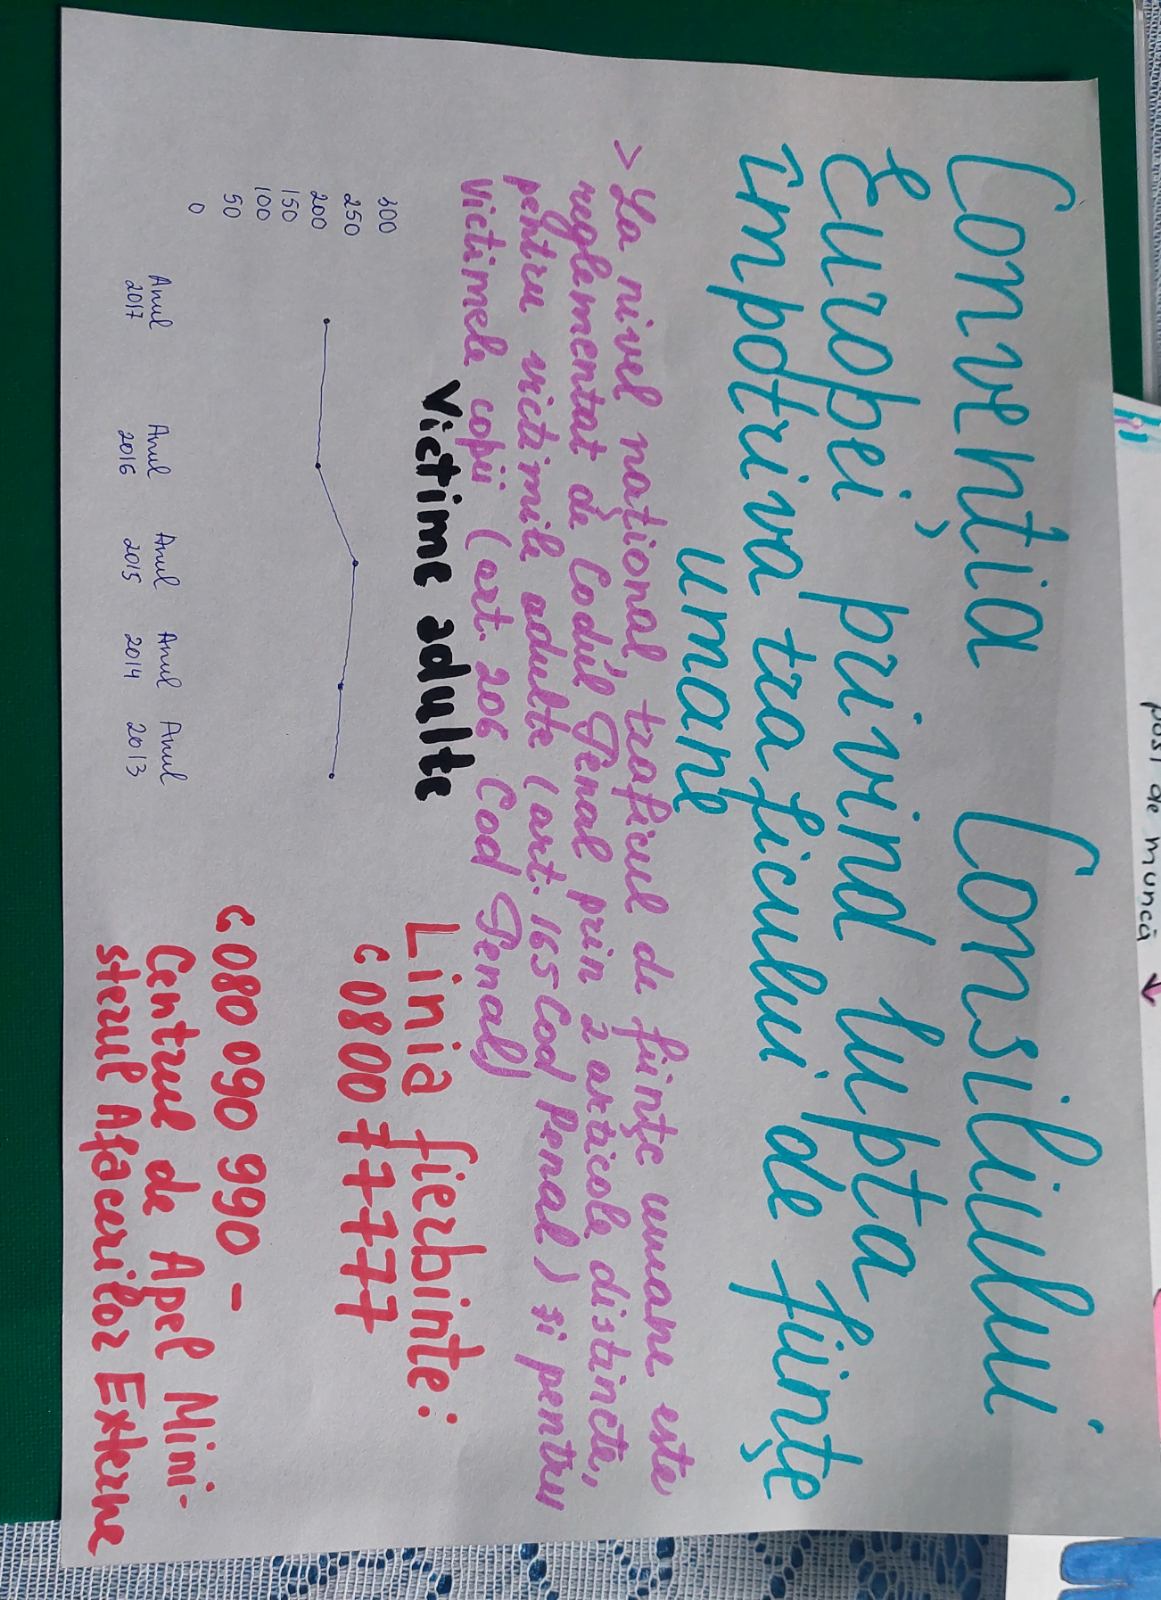 Convenția Consiliului
Europei privind lupta
împotriva traficului de ființe
umane
> La nivel național traficul de ființe umane este
reglementat de Codul Penal prin 2 articole distincte,
pentru victimile adulte (art. 165 Cod Penal) și pentru
victimele copii (art. 206 Cod Penal)
Victime adulte
300
250
200
150
100
50
0
Anul 2017
Anul 2016
Anul 2015
Anul 2014
Anul 2013
Linia fierbinte:
0800 77777
080 090 990 -
Centrul de Apel Mini-
sterul Afacerilor Externe
post de muncă